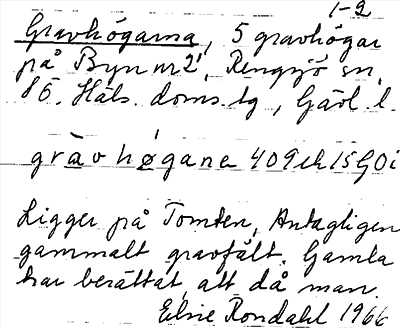 1-2
Gravhögarna, 5 gravhögar
på Byn nr 2, Rengsjö sn,
SÖ. Häls. doms. tg, Gävl. l.
gravhøgane
Ligger på Tomten, Antagligen
gammalt gravfält. Gamla
har berättat att då man
Elsie Rondahl 1966